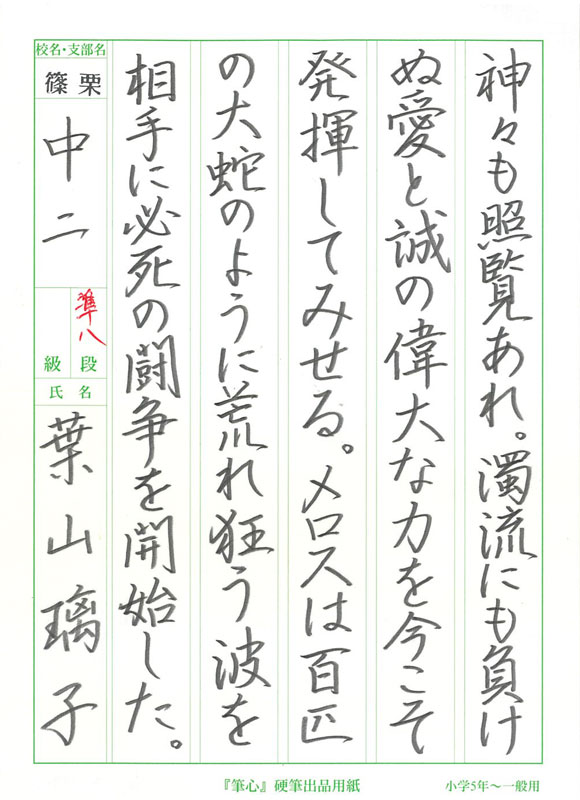 神々も照覧あれ。濁流にも負け
ぬ愛と誠の偉大な力を今こそ
発揮してみせる。メロスは百匹
の大蛇のように荒れ狂う波を
相手に必死の闘争を開始した。
校名・支部名
篠栗
中二
準八
段
級
氏名
葉山璃子
『筆心』硬筆出品用紙
小学5年～一般用